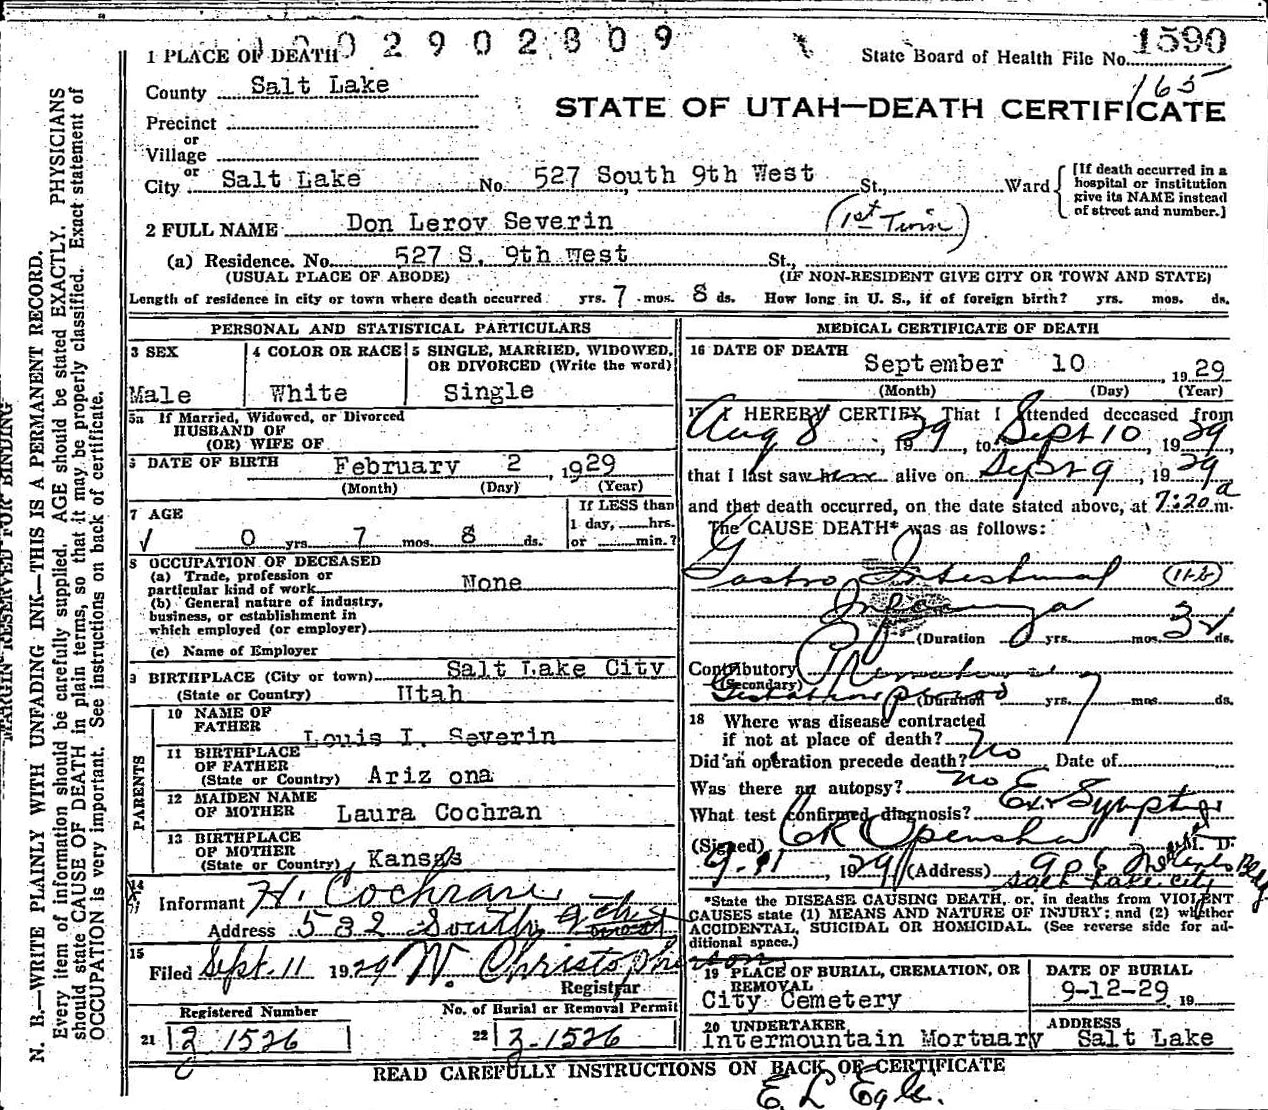 N. B.—WRITE PLAINLY WITH UNFADING INK—THIS IS A PERMANENT RECORD.
Every item of information should be carefully supplied. AGE should be stated EXACTLY. PHYSICIANS
should state CAUSE OF DEATH in plain terms, so that it may be properly classified. Exact statement of
OCCUPATION is very important. See instructions on back of certificate.
MARGIN RESERVED FOR BINDING
02902809
1 PLACE OF DEATH
State Board of Health File No. 1590
165
County Salt Lake
STATE OF UTAH—DEATH CERTIFICATE
Precinct
or
Village
or
City Salt Lake No. 527 South 9th West St., Ward
[If death occurred in a
hospital or institution
give its NAME instead
of street and number.]
2 FULL NAME Don Leroy Severin (1st Twin)
(a) Residence. No. 527 S. 9th West St.,
(USUAL PLACE OF ABODE) (IF NON-RESIDENT GIVE CITY OR TOWN AND STATE)
Length of residence in city or town where death occurred yrs. 7 mos. 8 ds. How long in U. S., if of foreign birth? yrs. mos. ds.
PERSONAL AND STATISTICAL PARTICULARS
3 SEX
Male
4 COLOR OR RACE
White
5 SINGLE, MARRIED, WIDOWED,
OR DIVORCED (Write the word)
Single
5a If Married, Widowed, or Divorced
HUSBAND OF
(OR) WIFE OF
DATE OF BIRTH February 2, 1929
(Month) (Day) (Year)
7 AGE
0 yrs. 7 mos. 8 ds.
If LESS than
1 day, hrs.
or min.?
8 OCCUPATION OF DECEASED
(a) Trade, profession or
particular kind of work None
(b) General nature of industry,
business, or establishment in
which employed (or employer)
(c) Name of Employer
BIRTHPLACE (City or town) Salt Lake City
(State or Country) Utah
PARENTS
10 NAME OF
FATHER Louis I. Severin
11 BIRTHPLACE
OF FATHER
(State or Country) Ariz ona
12 MAIDEN NAME
OF MOTHER Laura Cochran
13 BIRTHPLACE
OF MOTHER
(State or Country) Kansas
14
Informant H. Cochran
Address 532 South
15
Filed Sept. 11 1929 W. Christopherson
Registrar
Registered Number
21 1526
No. of Burial or Removal Permit
22 1526
MEDICAL CERTIFICATE OF DEATH
16 DATE OF DEATH
September 10, 1929
(Month) (Day) (Year)
17 I HEREBY CERTIFY, That I attended deceased from
Aug 8, 1929, to Sept 10, 1929,
that I last saw him alive on Sept 9, 1929
and that death occurred, on the date stated above, at 7:20 a m.
The CAUSE DEATH* was as follows:
Gastro Intestinal (11-b)
Influenza
(Duration yrs. mos. ds.
Contributory
(Secondary)
(Duration yrs. mos. ds.
18 Where was disease contracted
if not at place of death?
Did an operation precede death? No Date of
Was there an autopsy? no
What test confirmed diagnosis? Ex & Symptoms
(Signed) Openshaw M. D.
9-11, 1929 (Address) Medical Bldg
Salt Lake City
*State the DISEASE CAUSING DEATH, or, in deaths from VIOLENT
CAUSES state (1) MEANS AND NATURE OF INJURY; and (2) whether
ACCIDENTAL, SUICIDAL OR HOMICIDAL. (See reverse side for ad-
ditional space.)
19 PLACE OF BURIAL, CREMATION, OR
REMOVAL
City Cemetery
DATE OF BURIAL
9-12-29 19
20 UNDERTAKER
Intermountain Mortuary
ADDRESS
Salt Lake
READ CAREFULLY INSTRUCTIONS ON BACK OF CERTIFICATE